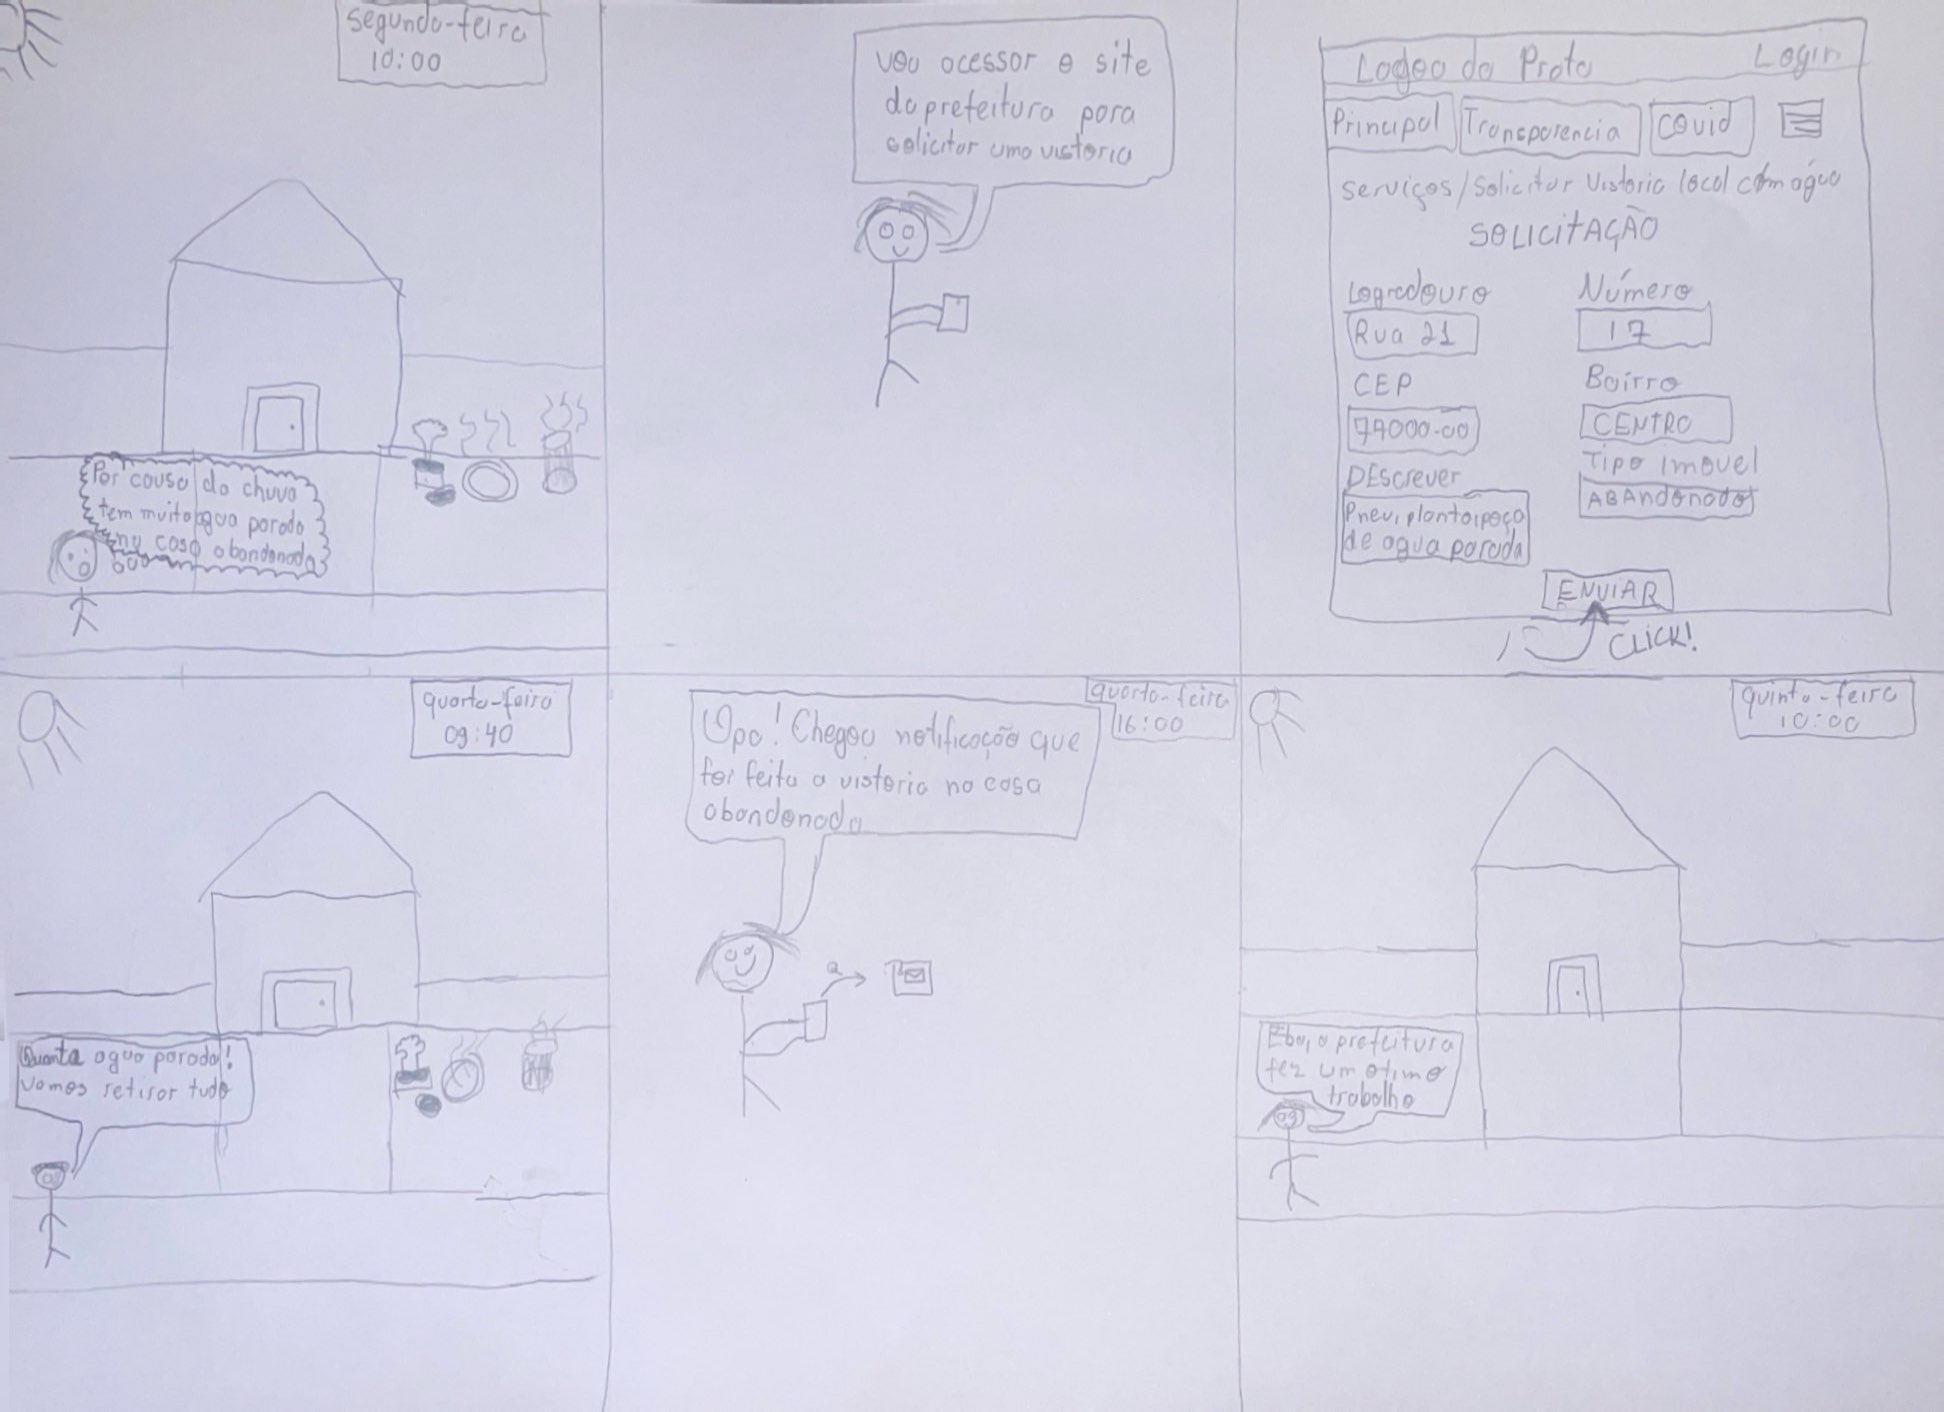 segunda-feira
10:00
Por causa da chuva
tem muita agua parada
na casa abandonada
vou acessar o site
da prefeitura para
solicitar uma vistoria
Logoo da Prata
Login
Principal
Transparencia
COvid
serviços/Solicitar Vistoria local com água
SOLICITAÇÃO
Logradouro
Número
Rua 21
17
CEP
Bairro
74000-00
CENTRO
DEscrever
Tipo Imovel
Pneu, planta, poça
de agua parada
ABAndonados
ENVIAR
CLICK!
quarta-feira
09:40
Quanta agua parada!
vamos retirar tudo
quarta-feira
16:00
Opa! Chegou notificação que
foi feita a vistoria na casa
abandonada
quinta-feira
10:00
Eba, a prefeitura
fez um otimo
trabalho